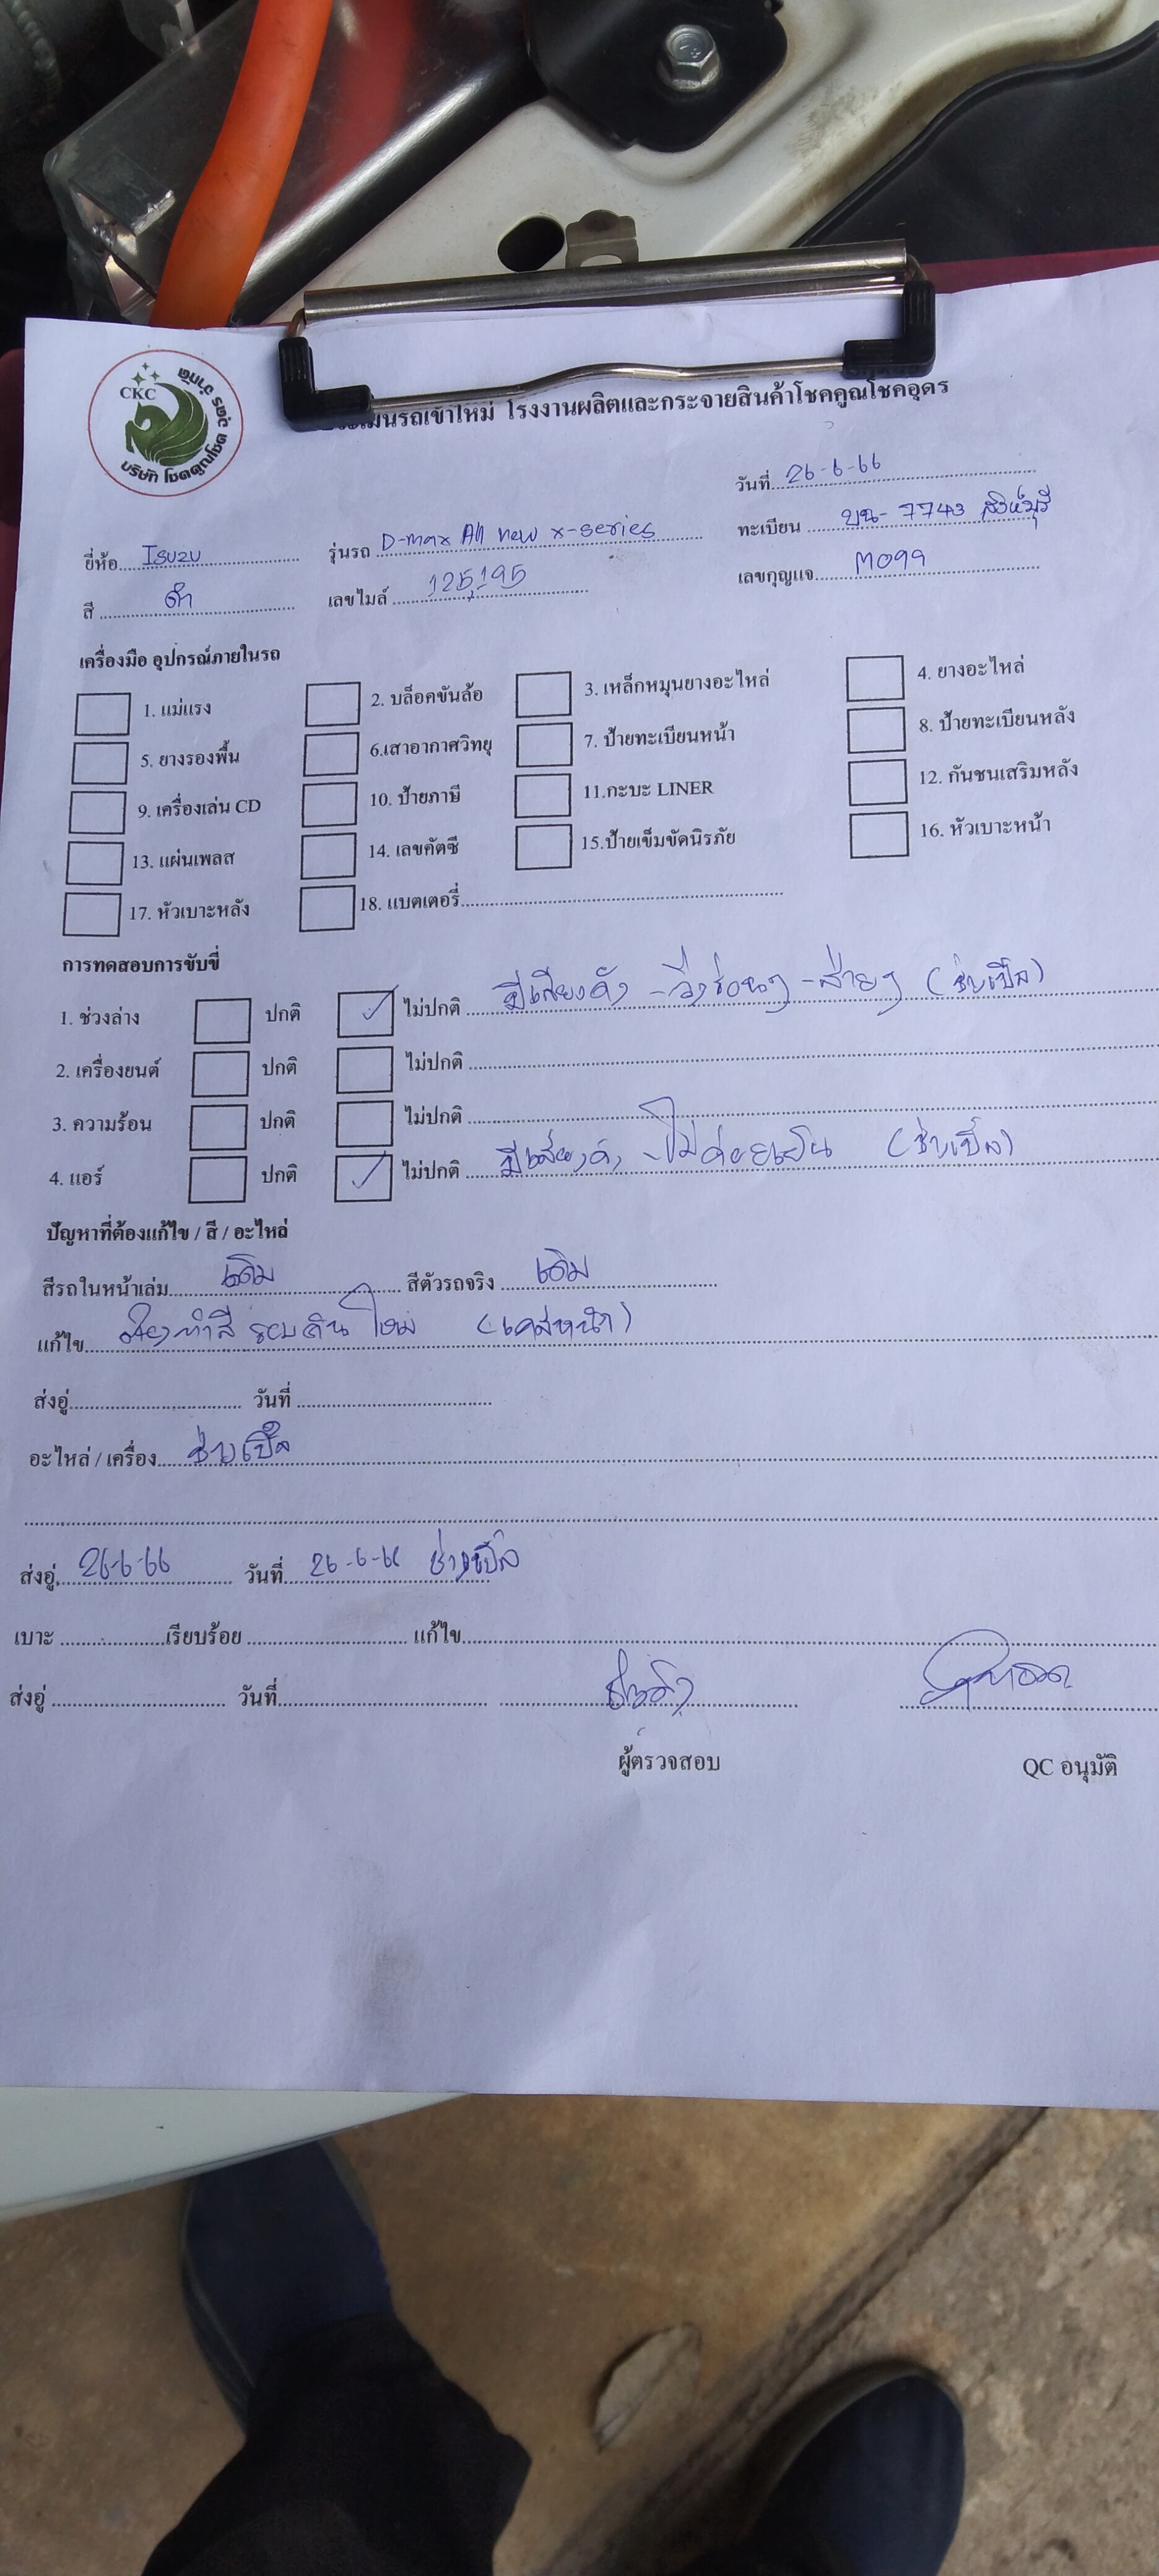 CKC
บริษัท โชคคูณโชค อุดร จำกัด
ประเมินรถเข้าใหม่ โรงงานผลิตและกระจายสินค้าโชคคูณโชคอุดร
วันที่ 26-6-66
ยี่ห้อ Isuzu รุ่นรถ D-max All new x-series ทะเบียน บน- 7743 สิงห์บุรี
สี ดำ เลขไมล์ 125,195 เลขกุญแจ M099
เครื่องมือ อุปกรณ์ภายในรถ
1. แม่แรง 2. บล็อคขันล้อ 3. เหล็กหมุนยางอะไหล่ 4. ยางอะไหล่
5. ยางรองพื้น 6.เสาอากาศวิทยุ 7. ป้ายทะเบียนหน้า 8. ป้ายทะเบียนหลัง
9. เครื่องเล่น CD 10. ป้ายภาษี 11.กะบะ LINER 12. กันชนเสริมหลัง
13. แผ่นเพลส 14. เลขคัตซี 15.ป้ายเข็มขัดนิรภัย 16. หัวเบาะหน้า
17. หัวเบาะหลัง 18. แบตเตอรี่
การทดสอบการขับขี่
1. ช่วงล่าง ปกติ ✓ ไม่ปกติ มีเสียงดัง -วิ่งร่อนๆ -ส่ายๆ (ช่างเปิ้ล)
2. เครื่องยนต์ ปกติ ไม่ปกติ
3. ความร้อน ปกติ ไม่ปกติ
4. แอร์ ปกติ ✓ ไม่ปกติ มีเสียงดัง -ไม่ค่อยเย็น (ช่างเปิ้ล)
ปัญหาที่ต้องแก้ไข / สี / อะไหล่
สีรถในหน้าเล่ม เดิม สีตัวรถจริง เดิม
แก้ไข ต้องทำสี รอบคันใหม่
ส่งอู่ วันที่
อะไหล่ / เครื่อง ช่างเปิ้ล
ส่งอู่ 26-6-66 วันที่ 26-6-66 ช่างเปิ้ล
เบาะ เรียบร้อย แก้ไข
ส่งอู่ วันที่
ผู้ตรวจสอบ QC อนุมัติ